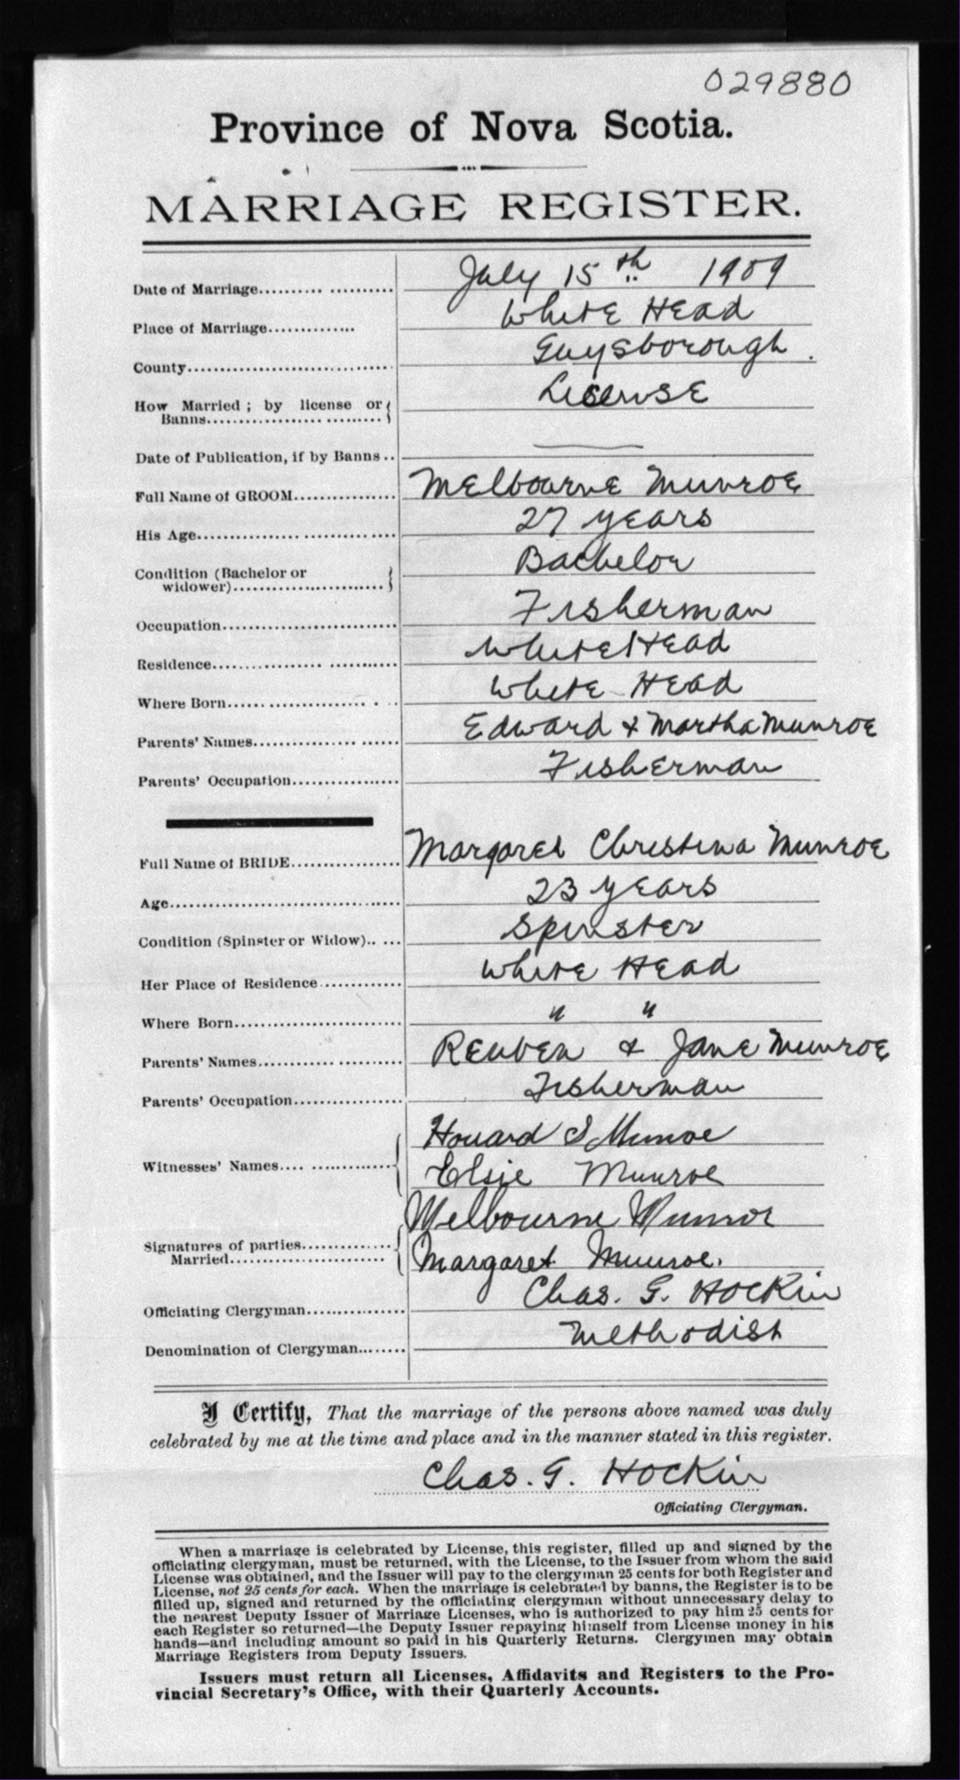 029880
Province of Nova Scotia.
MARRIAGE REGISTER.
Date of Marriage.......... .......... July 15th 1909
Place of Marriage.............. White Head
County.............................. Guysborough.
How Married; by license or License
Banns..........................
Date of Publication, if by Banns.. ——
Full Name of GROOM............... Melbourne Munroe
His Age.............................. 27 years
Condition (Bachelor or Bachelor
widower)........................
Occupation.......................... Fisherman
Residence........................... White Head
Where Born........................ White Head
Parents' Names.................... Edward & Martha Munroe
Parents' Occupation............... Fisherman
Full Name of BRIDE................ Margaret Christina Munroe
Age.................................. 23 years
Condition (Spinster or Widow)..... Spinster
Her Place of Residence............ White Head
Where Born........................ " "
Parents' Names.................... Reuben & Jane Munroe
Parents' Occupation............... Fisherman
Howard S Munroe
Witnesses' Names..................
Elsie Munroe
Melbourne Munroe
Signatures of parties.............
Married........................ Margaret Munroe.
Officiating Clergyman............. Chas. G. Hockin
Denomination of Clergyman........ Methodist
I Certify, That the marriage of the persons above named was duly
celebrated by me at the time and place and in the manner stated in this register.
Chas. G. Hockin
Officiating Clergyman.
When a marriage is celebrated by License, this register, filled up and signed by the
officiating clergyman, must be returned, with the License, to the Issuer from whom the said
License was obtained, and the Issuer will pay to the clergyman 25 cents for both Register and
License, not 25 cents for each. When the marriage is celebrated by banns, the Register is to be
filled up, signed and returned by the officiating clergyman without unnecessary delay to
the nearest Deputy Issuer of Marriage Licenses, who is authorized to pay him 25 cents for
each Register so returned—the Deputy Issuer repaying himself from License money in his
hands—and including amount so paid in his Quarterly Returns. Clergymen may obtain
Marriage Registers from Deputy Issuers.
Issuers must return all Licenses, Affidavits and Registers to the Pro-
vincial Secretary's Office, with their Quarterly Accounts.